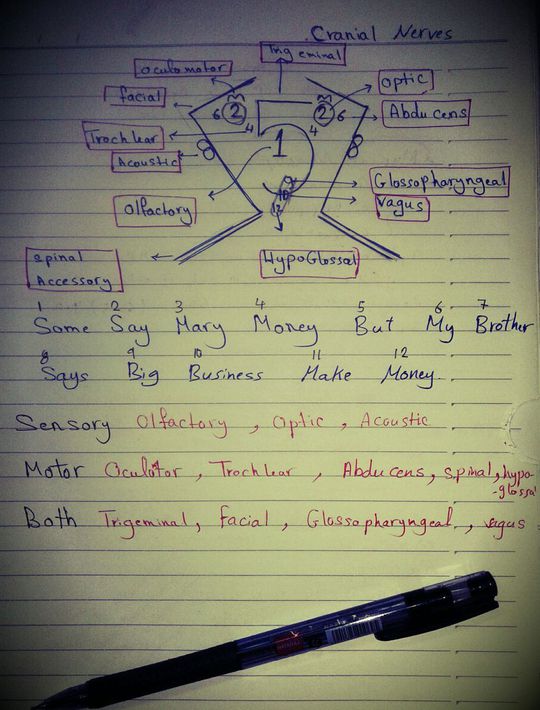 Cranial Nerves
Trigeminal
Oculomotor
Optic
facial
6 2 2 6
Abducens
4 4
Trochlear
1
Acoustic
Glossopharyngeal
9
10
Vagus
Olfactory
12
spinal
Accessory
HypoGlossal
1 2 3 4 5 6 7
Some Say Mary Money But My Brother
8 9 10 11 12
Says Big Business Make Money
Sensory Olfactory , Optic , Acoustic
Motor Oculotor , Trochlear , Abducens, spinal, hypo-
-glossal
Both Trigeminal, facial, Glossopharyngeal, vagus